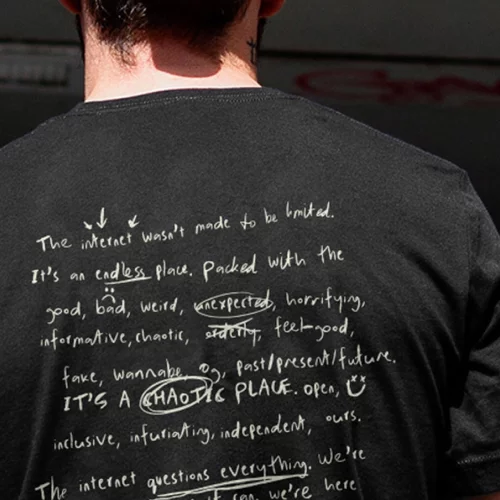 The internet wasn't made to be limited.
It's an endless place. Packed with the
good, bad, weird, unexpected, horrifying,
informative, chaotic, orderly, feel-good,
fake, wannabe, og, past/present/future.
IT'S A CHAOTIC PLACE. open,
inclusive, infuriating, independent, ours.
The internet questions everything. We're
if can, we're here